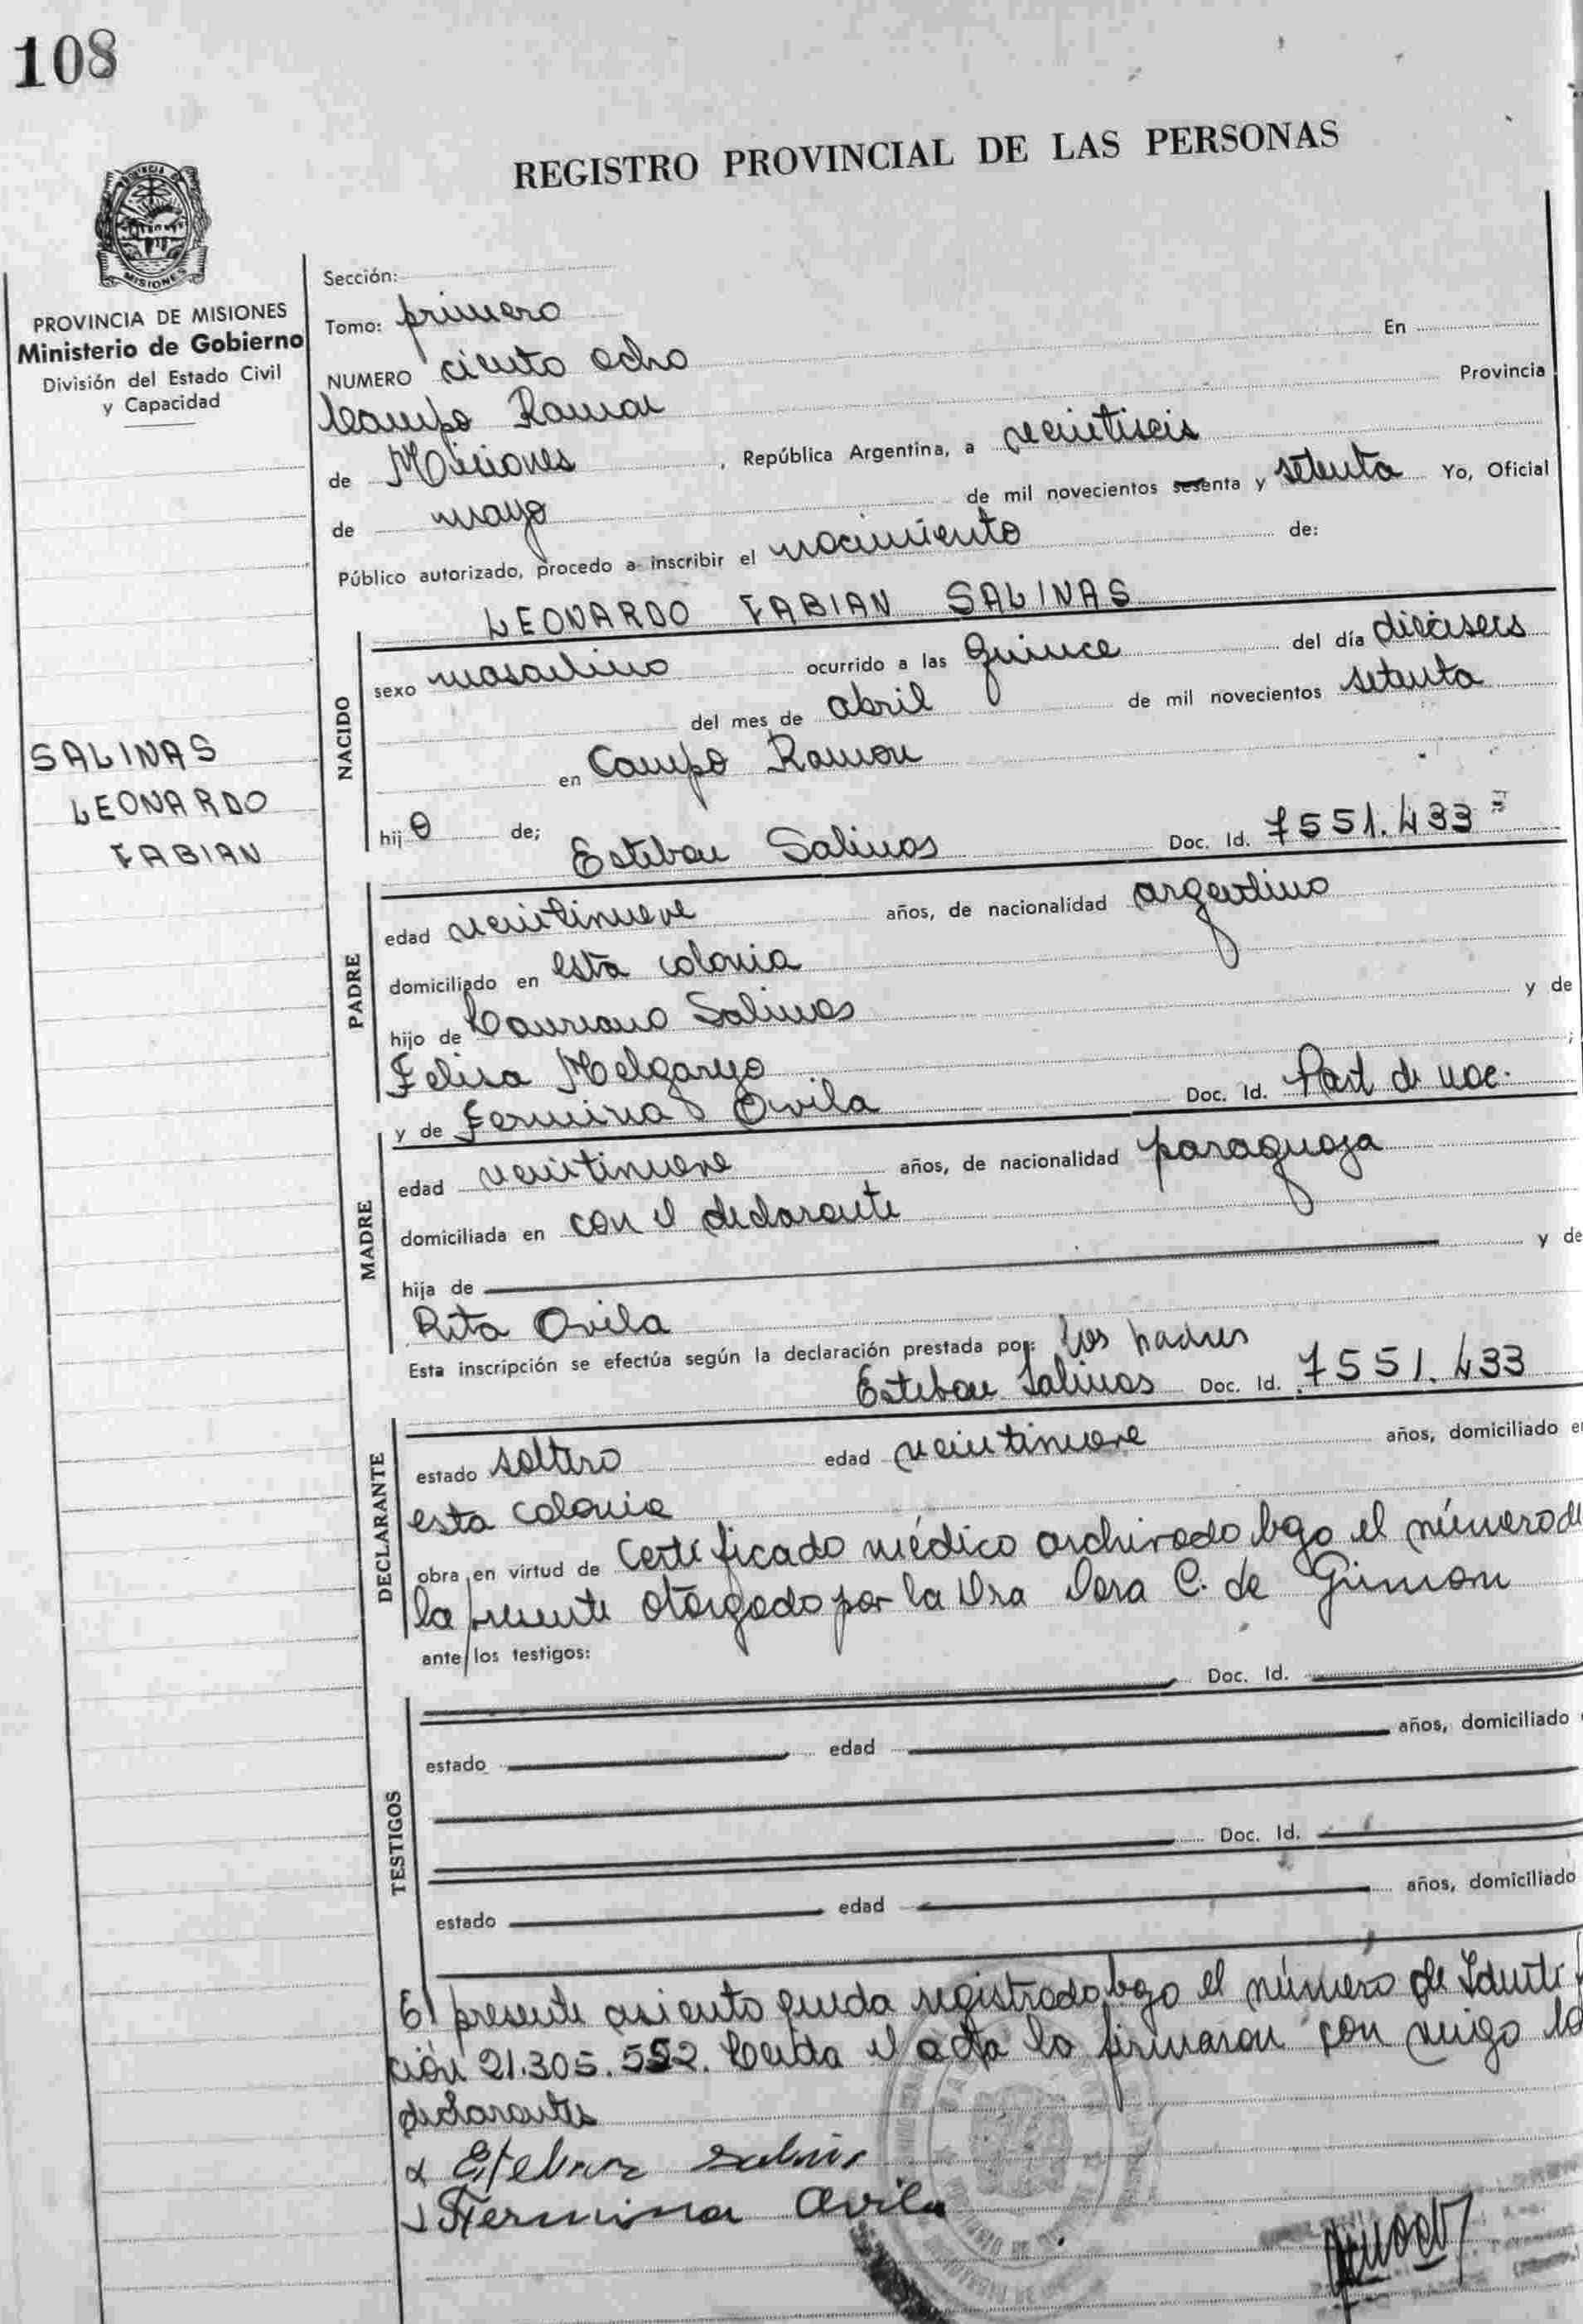 108
REGISTRO PROVINCIAL DE LAS PERSONAS
PROVINCIA DE MISIONES
Ministerio de Gobierno
División del Estado Civil
y Capacidad
SALINAS
LEONARDO
FABIAN
Sección:
Tomo: primero
NUMERO ciento ocho En
Campo Ramon Provincia
de Misiones, República Argentina, a veintiseis
de mayo de mil novecientos sesenta y setenta Yo, Oficial
Público autorizado, procedo a inscribir el nacimiento de:
LEONARDO FABIAN SALINAS
NACIDO
sexo masculino ocurrido a las quince del día dieciseis
del mes de abril de mil novecientos setenta
en Campo Ramon
hij o de;
Esteban Salinas Doc. Id. 7551.433=
PADRE
edad veintinueve años, de nacionalidad argentino
domiciliado en esta colonia
hijo de Salinas y de
Felisa Melgarejo ;
y de Fermina Avila Doc. Id. Part de nac.
MADRE
edad veintinueve años, de nacionalidad paraguaja
domiciliada en con el declarante
hija de y de
Rita Avila
Esta inscripción se efectúa según la declaración prestada por: los padres
Esteban Salinas Doc. Id. 7551.433
DECLARANTE
estado soltero edad veintinueve años, domiciliado en
esta colonia
obra en virtud de Certificado médico archivado bajo el número de
la presente otorgado por la Dra Dora C. de
ante los testigos:
Doc. Id.
TESTIGOS
estado edad años, domiciliado
Doc. Id.
estado edad años, domiciliado
El presente asiento queda registrado bajo el número de Identi
ción 21.305.552. Leida el acta la firmaron con migo lo
declarantes
Esteban Salinas
Fermina Avila